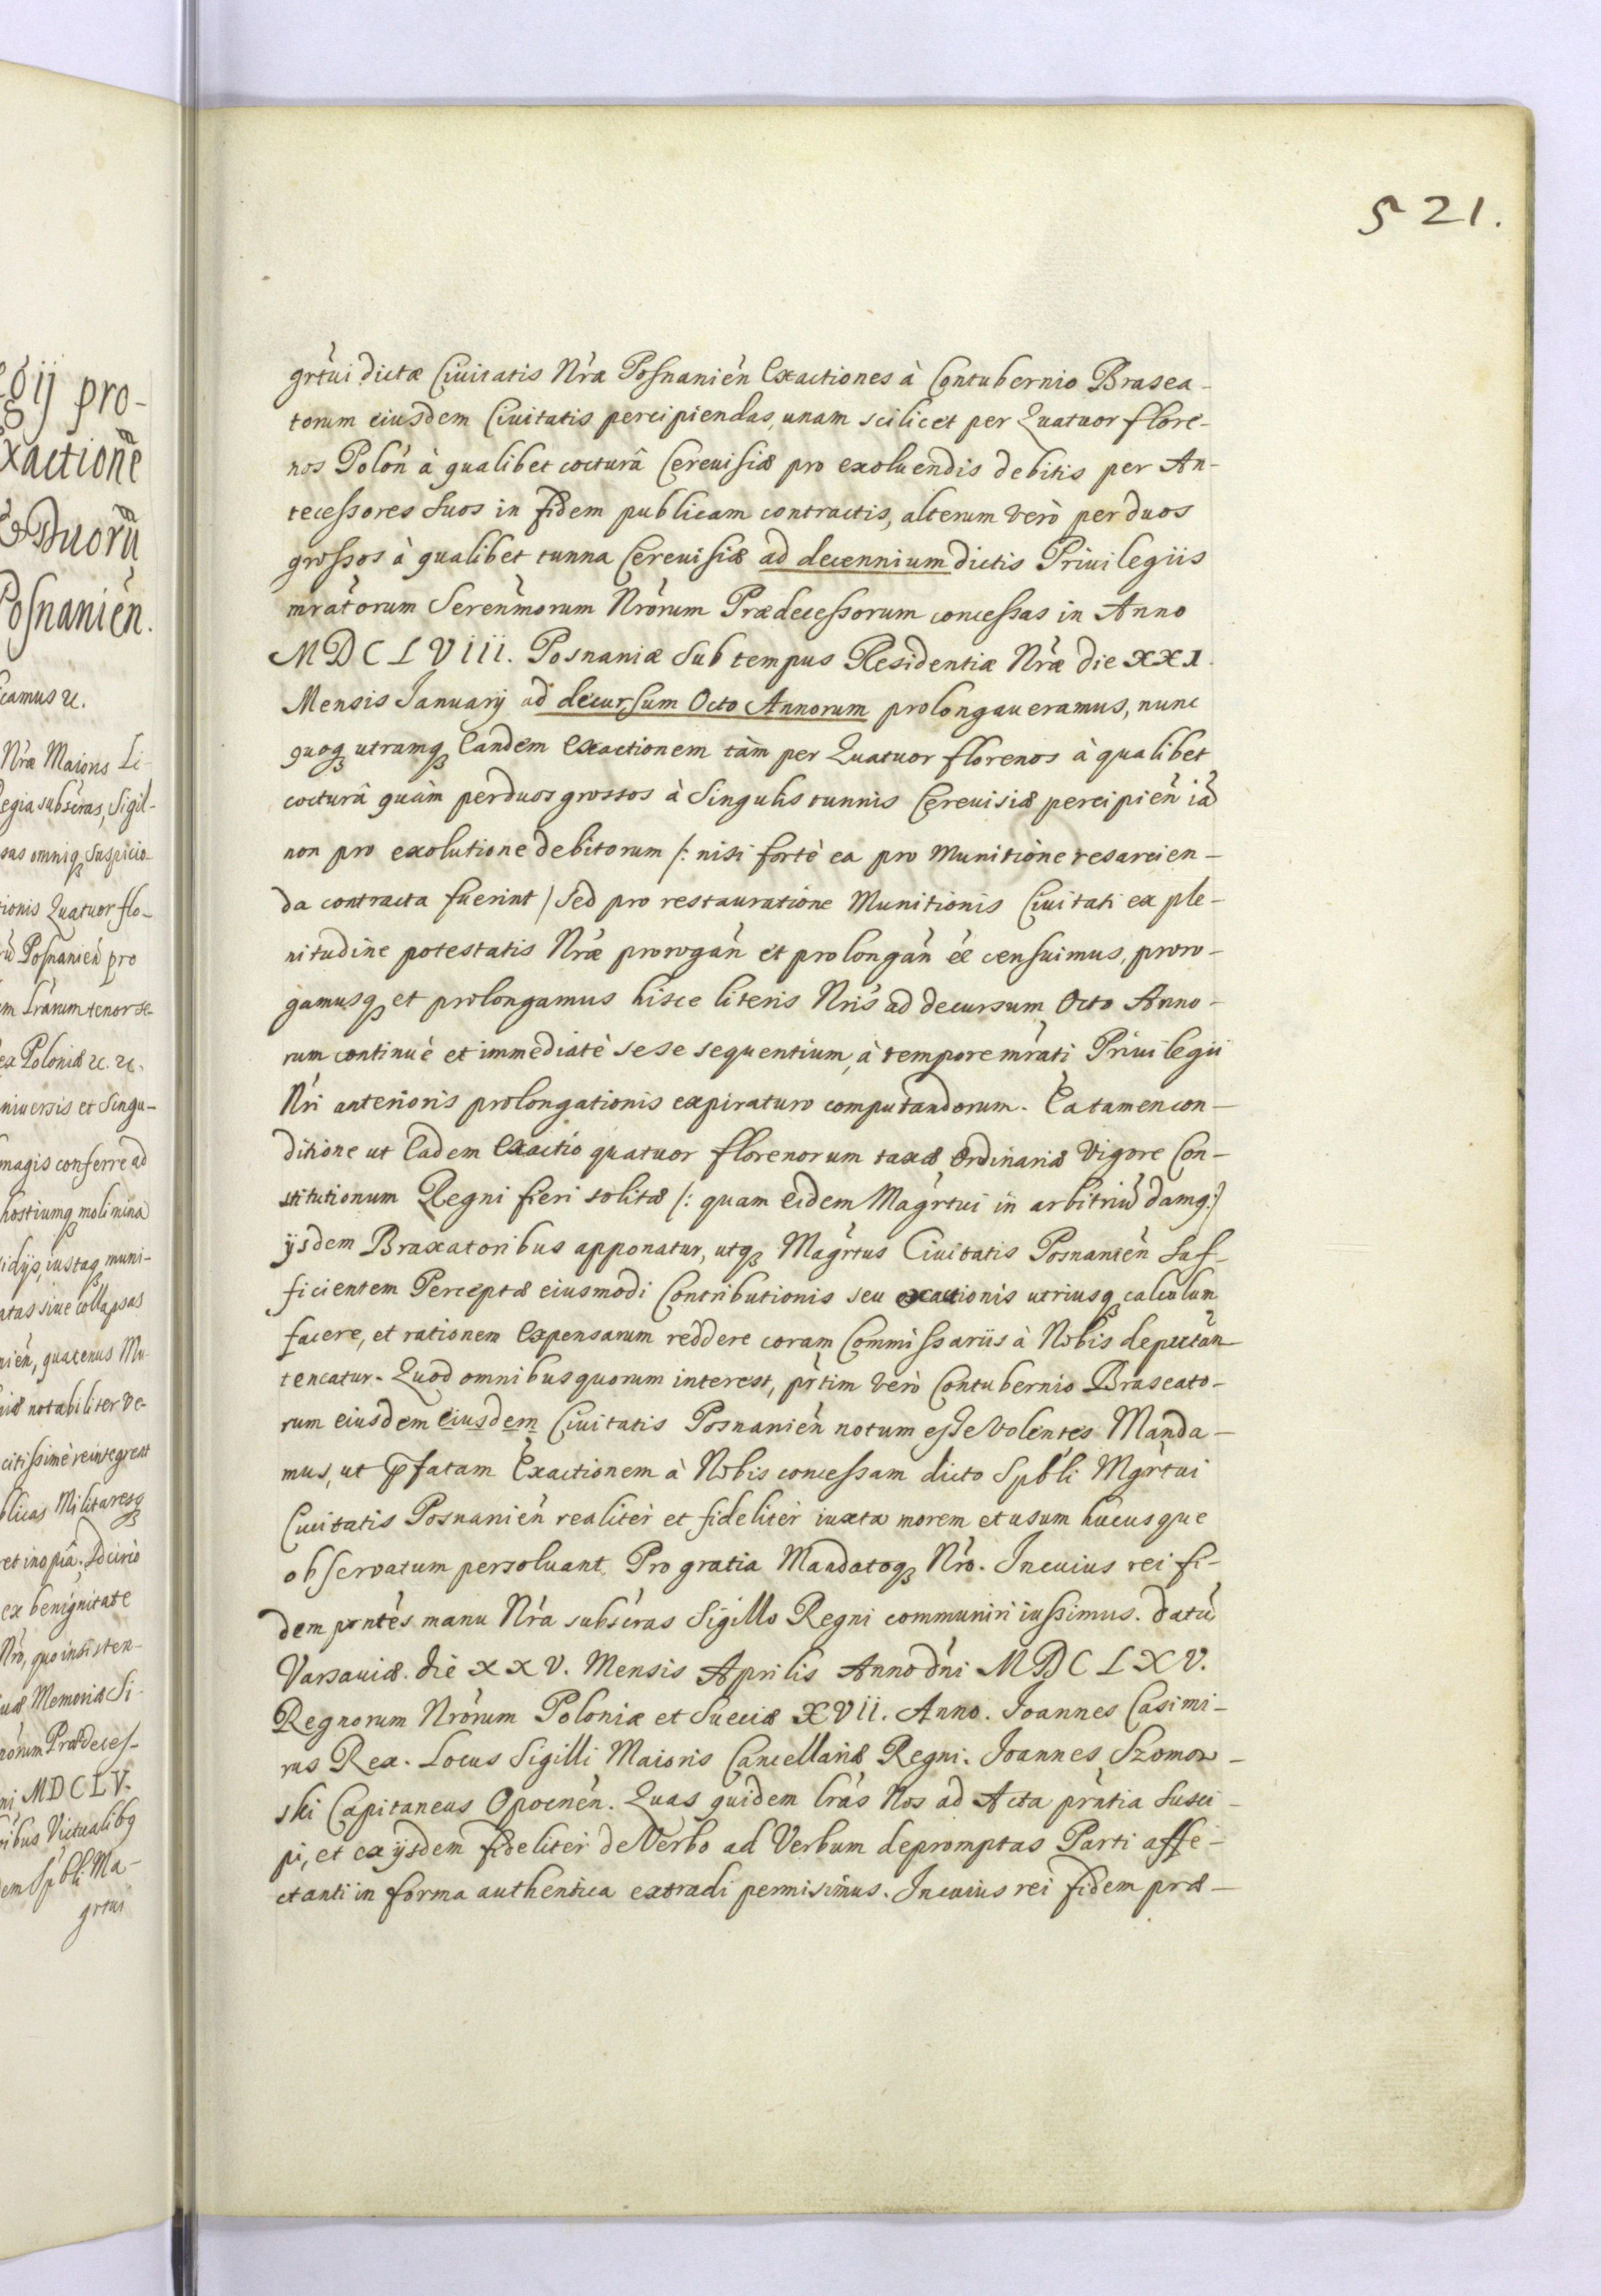 521.
grtui dictæ Ciuitatis Nræ Posnanień Exactiones à Contubernio Brasea-
torum eiusdem Ciuitatis percipiendas, unam scilicet per Quatuor flore-
nos Poloń à qualibet cocturâ Cereuisiæ pro exoluendis debitis per An-
tecessores suos in fidem publicam contractis, alterum verò per duos
grossos à qualibet tunna Cereuisiæ ad decennium dictis Priuilegiis
mratorum Serenmorum Nrorum Prædecessorum concessas in Anno
MDCLVIII. Posnaniæ sub tempus Residentiæ Nræ die XXI.
Mensis Ianuarij ad decursum Octo Annorum prolongaueramus, nunc
quoqꝫ utramqꝫ Eandem Exactionem tàm per Quatuor florenos à qualibet
cocturâ quàm per duos grossos à Singulis tunnis Cereuisiæ percipień iã
non pro exolutione debitorum /: nisi fortè ea pro Munitione resarcien-
da contracta fuerint / sed pro restauratione Munitionis Ciuitati ex ple-
nitudine potestatis Nræ prorogań et prolongań ee censuimus, proro-
gamusqꝫ et prolongamus hisce literis Nris ad decursum Octo Anno-
rum continuè et immediatè sese sequentium, à tempore mrati Priuilegii
Nri anterioris prolongationis expiraturo computandorum. Ea tamen con-
ditione ut Eadem Exactio quatuor florenorum taxæ Ordinariæ Vigore Con-
stitutionum Regni fieri solitæ /: quam eidem Magrtui in arbitriũ damꝗ :/
ijsdem Braxatoribus apponatur, utqꝫ Magrtus Ciuitatis Posnanień suf-
ficientem Perceptæ eiusmodi Contributionis seu exactionis utriusqꝫ calculum
facere, et rationem Expensarum reddere coram Commissariis à Nobis deputań
teneatur. Quod omnibus quorum interest, prtim verò Contubernio Braseato-
rum eiusdem eiusdem Ciuitatis Posnanień notum esse Volentes Manda-
mus, ut pfatam Exactionem à Nobis concessam dicto Spbli Mgrtui
Ciuitatis Posnanień realitèr et fidelitèr iuxta morem et usum hucusque
obseruatum persoluant. Pro gratia Mandatoqꝫ Nro. In cuius rei fi-
dem prntes manu Nra subscras Sigillo Regni communiri iussimus. Datũ
Varsauiæ. die XXV. Mensis Aprilis Anno Dni MDCLXV.
Regnorum Nrorum Poloniæ et Sueciæ XVII. Anno. Ioannes Casimi-
rus Rex. Locus Sigilli Maioris Cancellariæ Regni. Ioannes Szomow-
ski Capitaneus Opocneń. Quas quidem lras Nos ad Acta prntia susci-
pi, et ex ijsdem fidelitèr de Verbo ad Verbum depromptas Parti affe-
ctanti in forma authentica extradi permisimus. In cuius rei fidem præ-